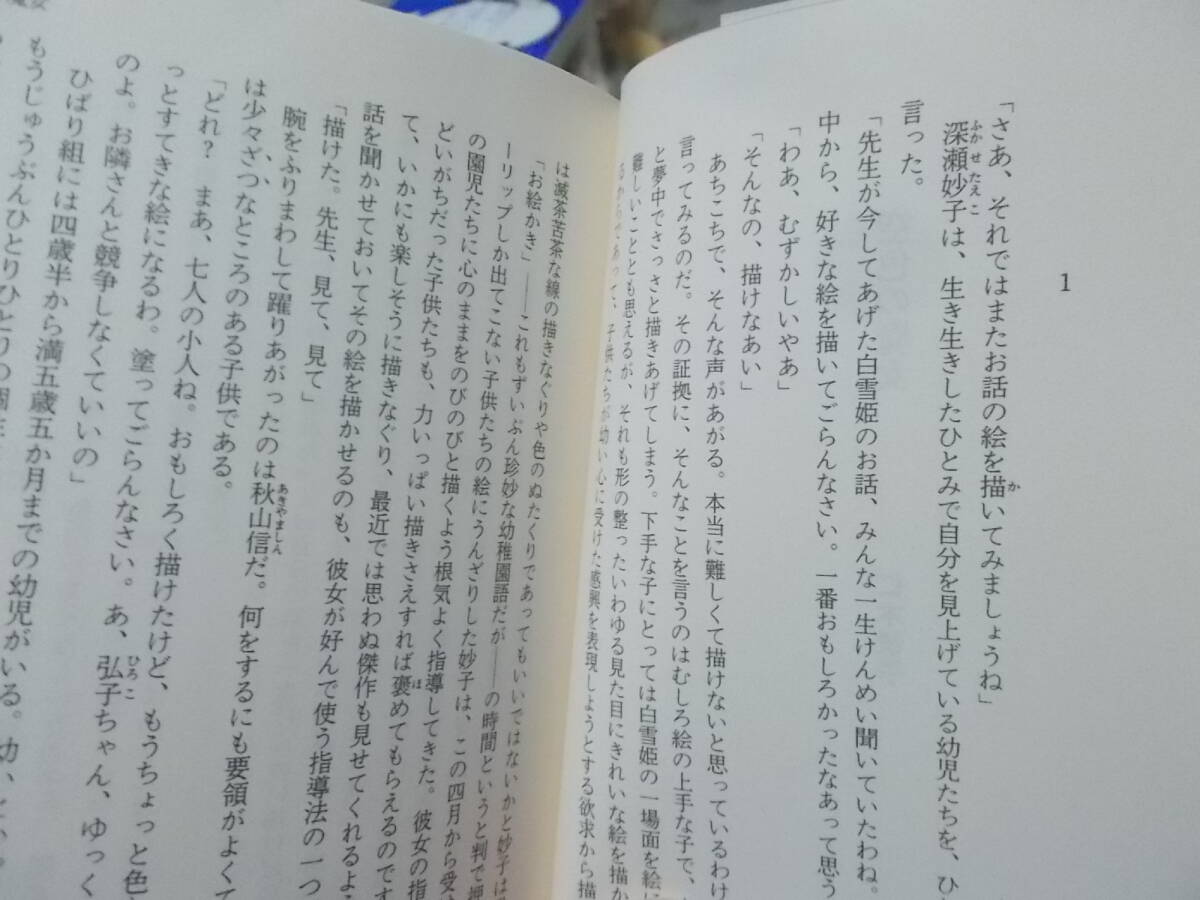 1
「さあ、それではまたお話の絵を描いてみましょうね」
深瀬妙子は、生き生きしたひとみで自分を見上げている幼児たちを、ひ
言った。
「先生が今してあげた白雪姫のお話、みんな一生けんめい聞いていたわね。
中から、好きな絵を描いてごらんなさい。一番おもしろかったなあって思う
「わあ、むずかしいやあ」
「そんなの、描けなあい」
あちこちで、そんな声があがる。本当に難しくて描けないと思っているわけ
言ってみるのだ。その証拠に、そんなことを言うのはむしろ絵の上手な子で、
と夢中でさっさと描きあげてしまう。下手な子にとっては白雪姫の一場面を絵に
難しいこととも思えるが、それも形の整ったいわゆる見た目にきれいな絵を描か
るからであって、子供たちが幼い心に受けた感興を表現しようとする欲求から描
は滅茶苦茶な線の描きなぐりや色のぬたくりであってもいいではないかと妙子は
「お絵かき」――これもずいぶん珍妙な幼稚園語だが――の時間というと判で押
ーリップしか出てこない子供たちの絵にうんざりした妙子は、この四月から受
の園児たちに心のままをのびのびと描くよう根気よく指導してきた。彼女の指
どいがちだった子供たちも、力いっぱい描きさえすれば褒めてもらえるのです
て、いかにも楽しそうに描きなぐり、最近では思わぬ傑作も見せてくれるよ
話を聞かせておいてその絵を描かせるのも、彼女が好んで使う指導法の一つ
「描けた。先生、見て、見て」
腕をふりまわして躍りあがったのは秋山信だ。何をするにも要領がよくて
は少々ざつなところのある子供である。
「どれ？　まあ、七人の小人ね。おもしろく描けたけど、もうちょっと色
っとすてきな絵になるわ。塗ってごらんなさい。あ、弘子ちゃん、ゆっく
のよ。お隣さんと競争しなくていいの」
ひばり組には四歳半から満五歳五か月までの幼児がいる。幼
もうじゅうぶんひとりひとりの